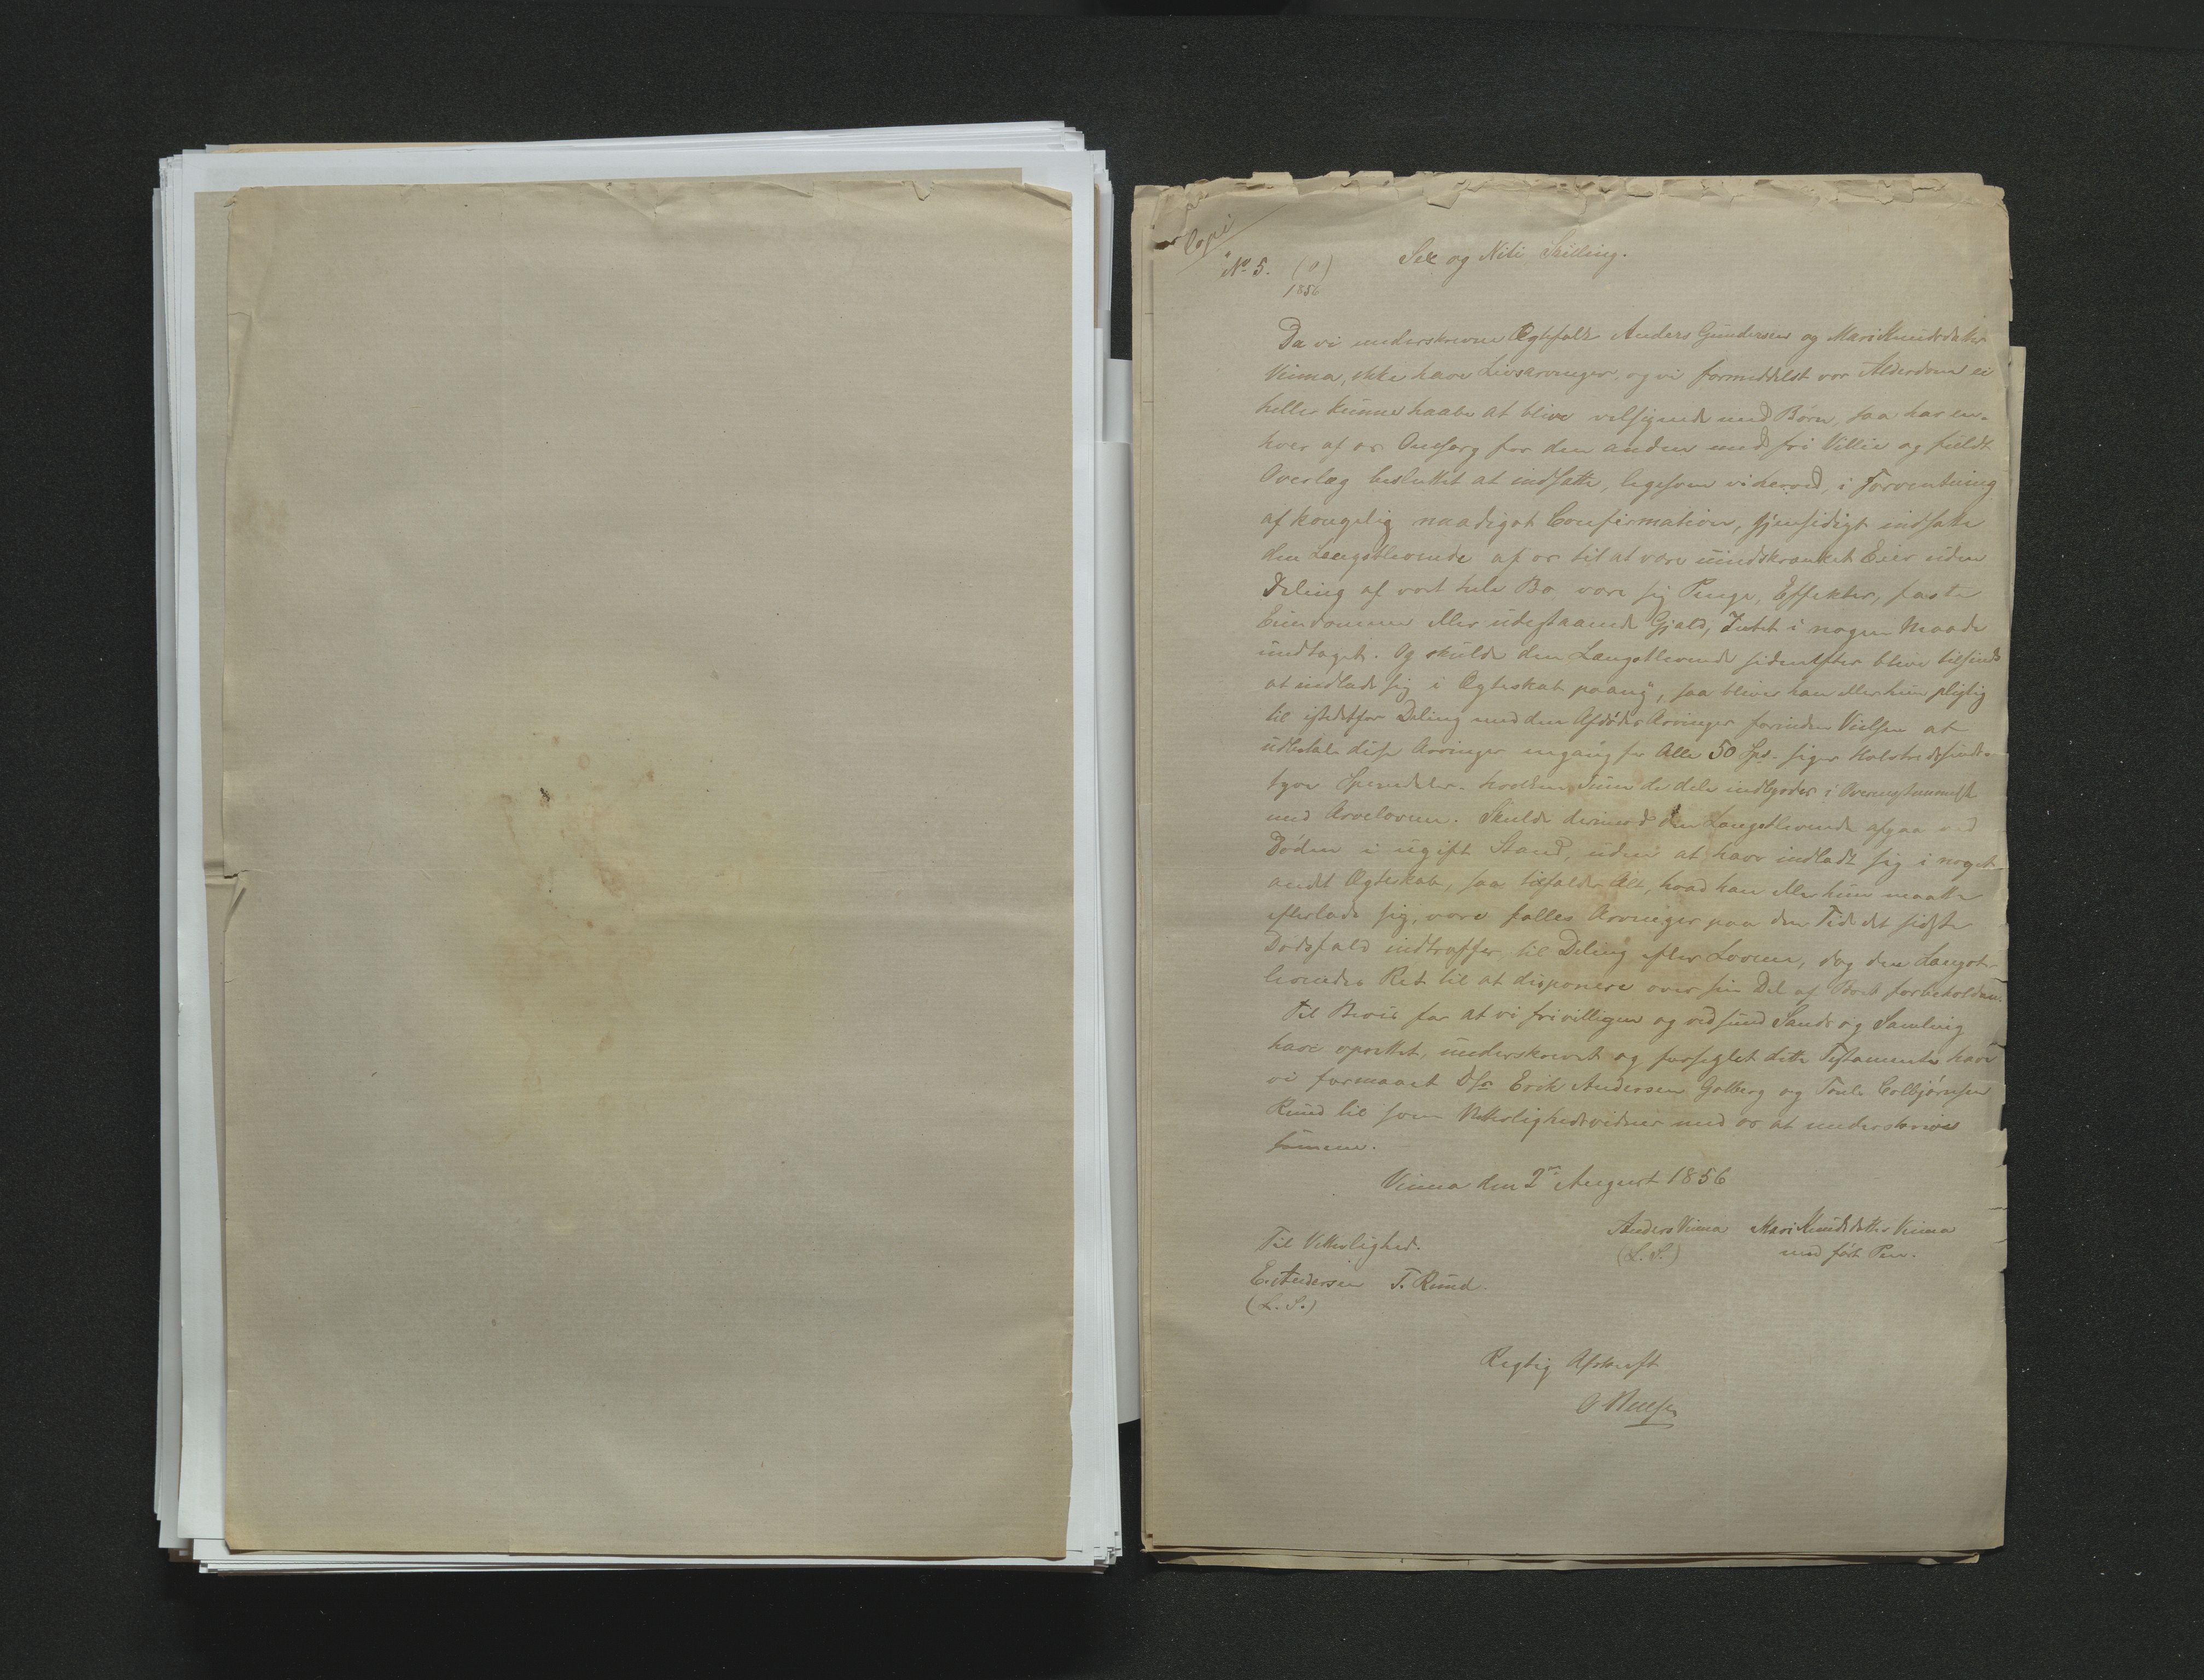 Copi
No. 5. (o) Sex og Niti Skilling.
1856
Da vi underskrevne Ægtefolk Anders Gundersen og Mari Knudsdatter
Vinna, ikke have Livsarvinger, og vi formeddelst vor Alderdom ei
heller kunne haabe at blive velsignede med Børn, saa har en-
hver af os Omsorg for den anden med fri Villie og fuldt
Overlæg besluttet at indsætte, ligesom vi herved, i Forventning
af kongelig naadigst Confirmation, gjensidigt indsætte
den Længstlevende af os til at være uindskrænket Eier uden
Deling af vort hele Bo være sig Penge, Effekter, faste
Eiendomme eller udestaaende Gjæld, Intet i nogen Maade
undtaget. Og skulde den Længstlevende sidenefter blive tilsinds
at indlade sig i Ægteskab paany, saa bliver han eller hun pligtig
til istedetfor Deling med den Afdødes Arvinger forinden Vielsen at
udbetale disse Arvinger engang for Alle 50 Spd. siger Halvtredsinds-
tyve Speciedaler. hvilken Sum de dele indbyrdes i Overensstemmelse
med Arveloven. Skulde derimod den Længstlevende afgaa ved
Døden i ugift Stand, uden at have indladt sig i noget
andet Ægteskab, saa tilfalder Alt, hvad han eller hun maatte
efterlade sig, vore fælles Arvinger paa den Tid det sidste
Dødsfald indtræffer, til Deling efter Loven, dog den Længst-
levendes Ret til at disponere over sin Del af Boet forbeholden.
Til Bevis for at vi frivilligen og ved sund Sands og Samling
have oprettet, underskrevet og forseglet dette Testamente have
vi formaaet Dhr. Erik Andersen Golberg og Toule Colbjørnsen
Rund til som Vitterlighedsvidner med os at underskrive
samme.
Vinna den 2den August 1856
Anders Vinna Mari Knudsdatter Vinna
(L. S.) med ført Pen.
Til Vitterlighed.
E. Andersen T. Rund.
(L. S.)
Rigtig Afskrift